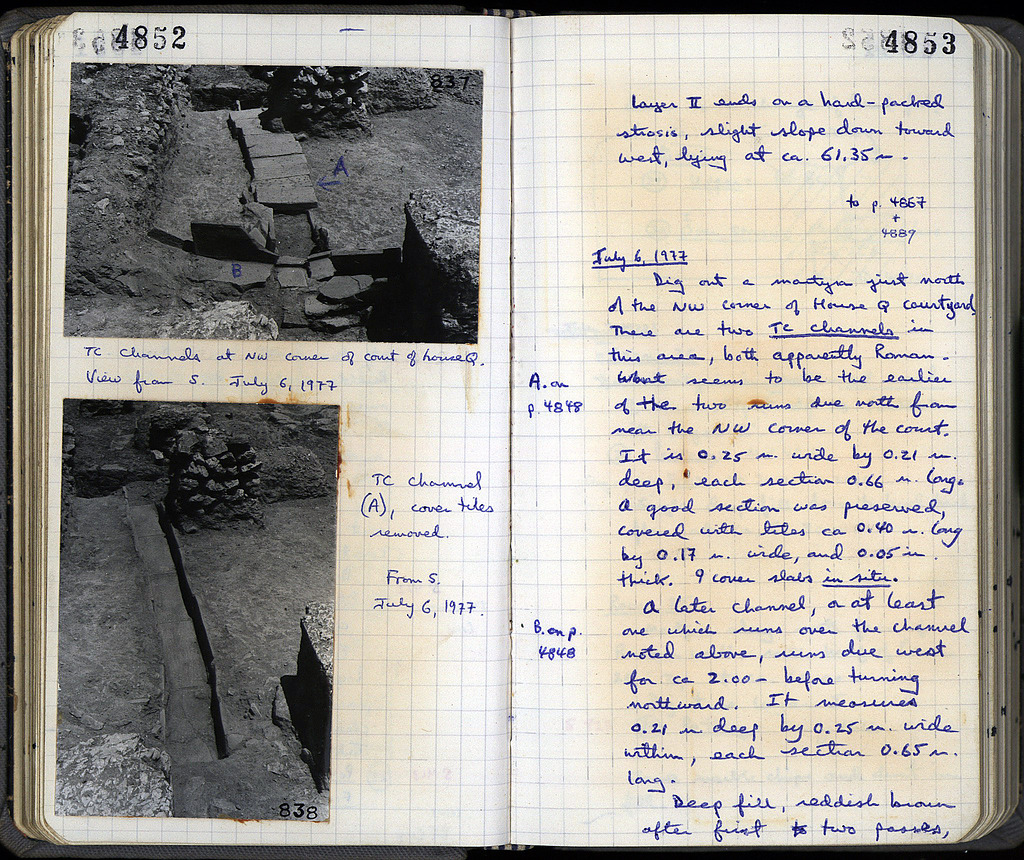 4852
837
A
B
TC channels at NW corner of court of house Q.
View from S. July 6, 1977
TC channel
(A), cover tiles
removed.
From S.
July 6, 1977.
838
4853
Layer II ends on a hard-packed
strosis, slight slope down toward
west, lying at ca. 61.35 m.
to p. 4867
+
4889
July 6, 1977
Dig out a martyra just north
of the NW corner of House Q courtyard.
There are two TC channels in
this area, both apparently Roman.
What seems to be the earlier
A. on
p. 4848
of the two runs due north from
near the NW corner of the court.
It is 0.25 m. wide by 0.21 m.
deep, each section 0.66 m. long.
A good section was preserved,
covered with tiles ca 0.40 m. long
by 0.17 m. wide, and 0.05 m.
thick. 9 cover slabs in situ.
A later channel, or at least
B. on p.
4848
one which runs over the channel
noted above, runs due west
for ca 2.00 - before turning
northward. It measures
0.21 m deep by 0.25 m. wide
within, each section 0.65 m.
long.
Deep fill, reddish brown
after first two passes,